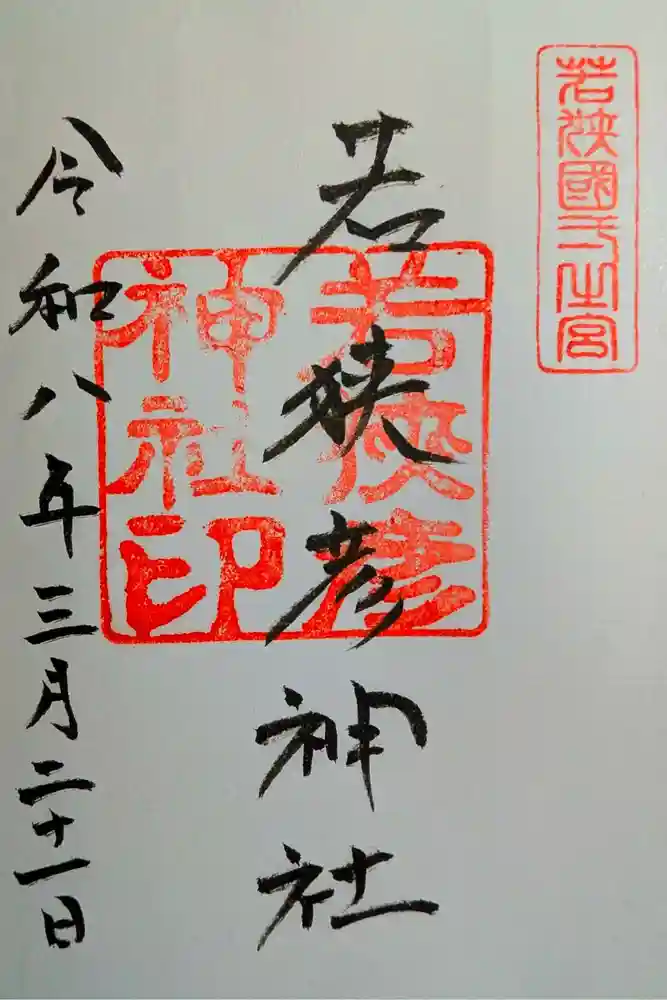 若狹國一之宮
若狭彦神社
若狹彦
神社印
令和八年三月二十一日